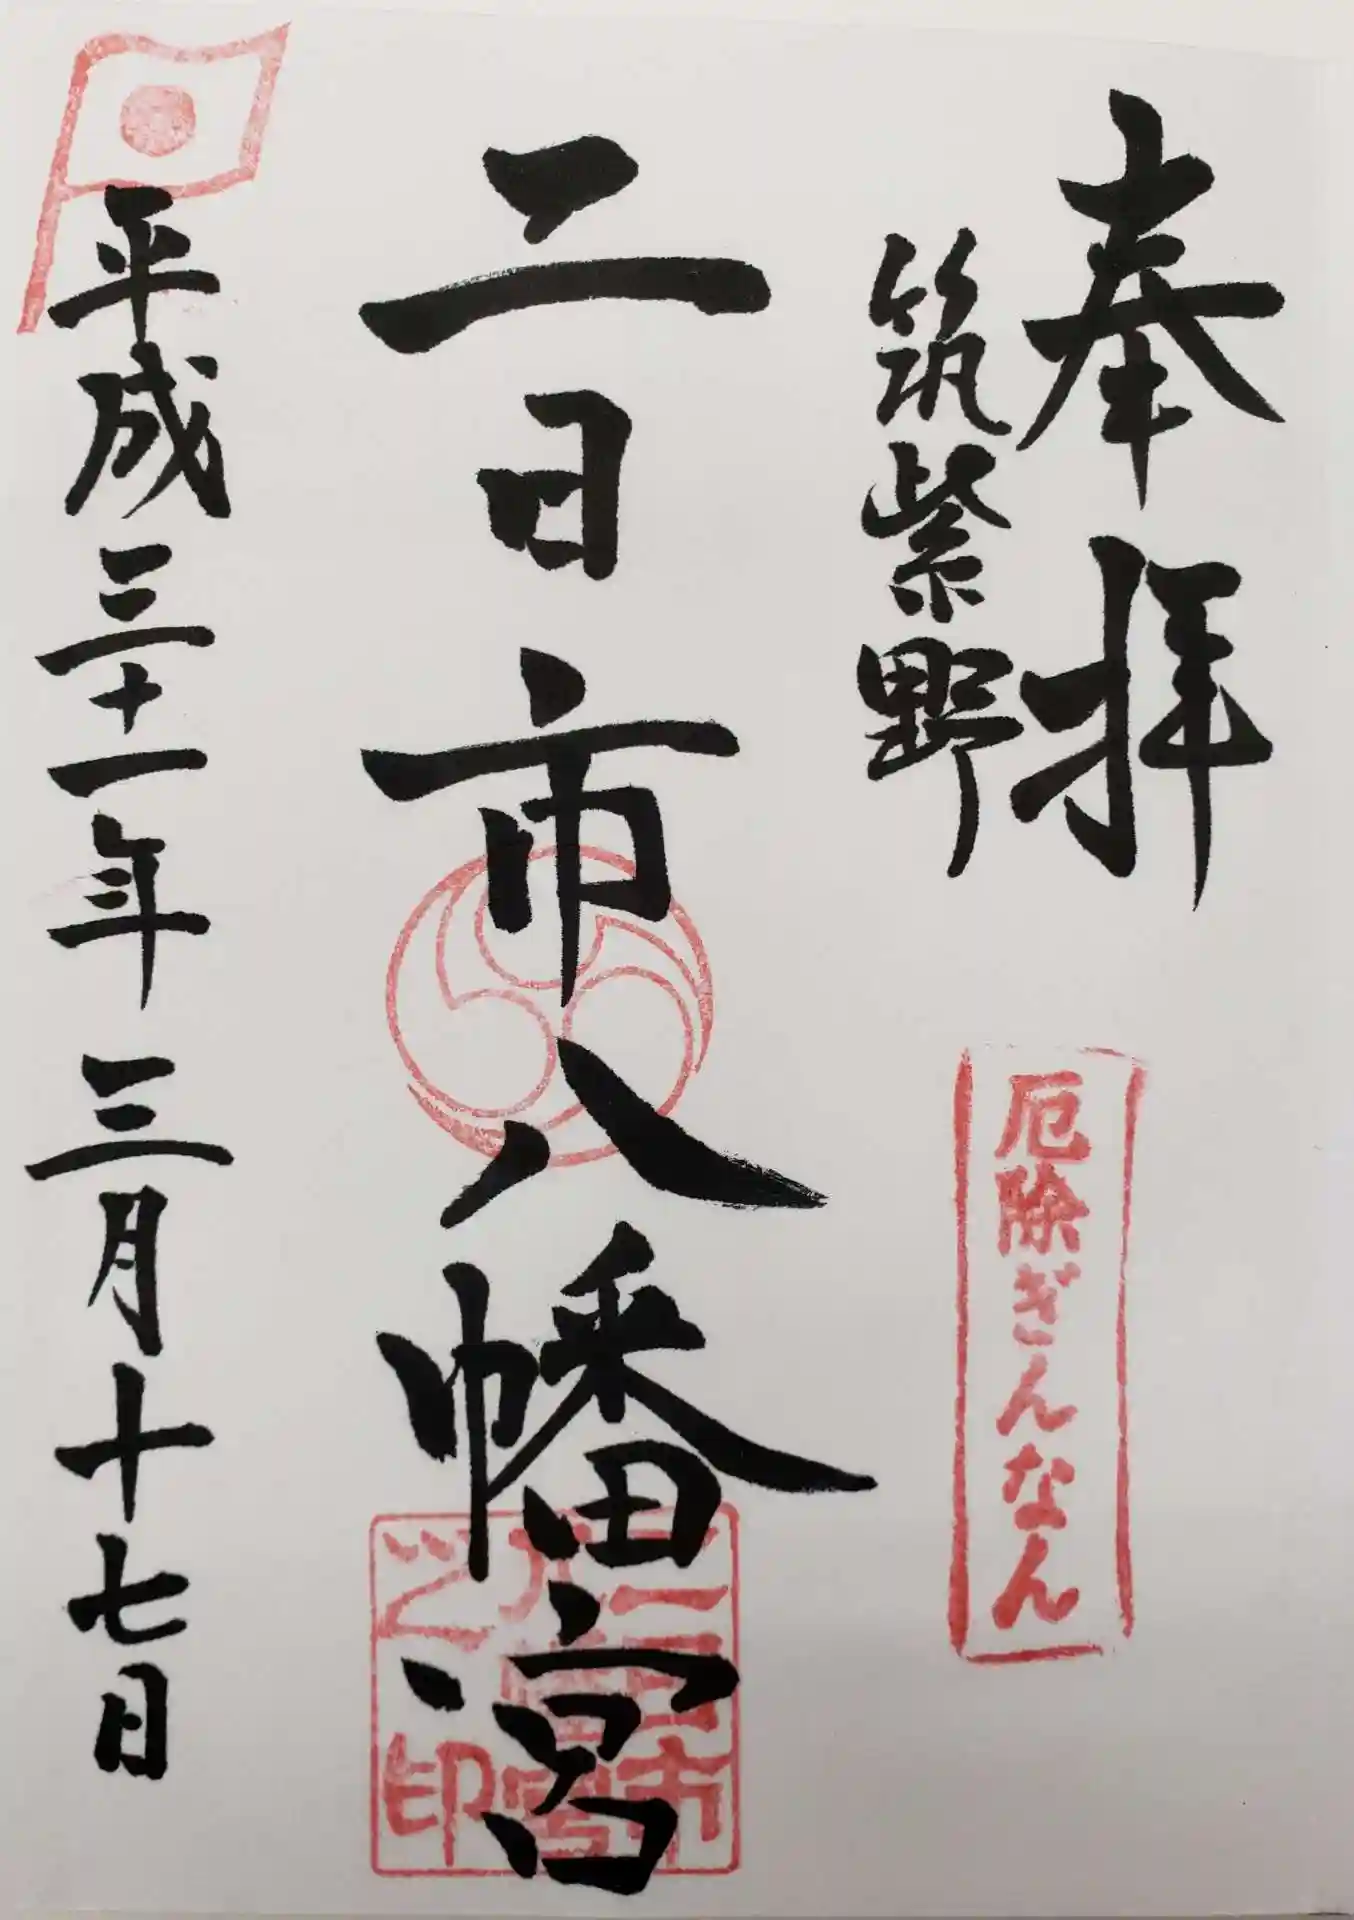 奉拝
筑紫野
厄除ぎんなん
二日市八幡宮
二日市八幡宮之印
平成三十一年三月十七日